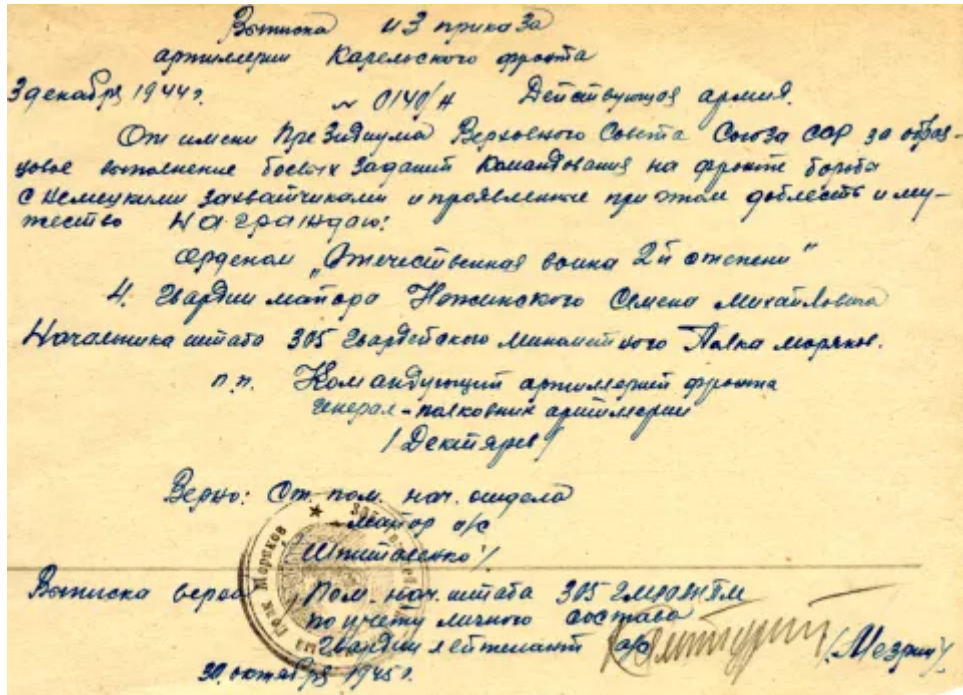 Выписка из приказа
артиллерии Карельского фронта
3 декабря 1944 г. № 0140/Н Действующая армия.
От имени Президиума Верховного Совета Союза ССР за образ-
цовое выполнение боевых заданий командования на фронте борьба
с немецкими захватчиками и проявленные при этом доблесть и му-
жество награждаю:
Орденом „Отечественная война 2й степени"
4. Гвардии майора Сёмена Михайловича
Начальника штаба 305 Гвардейского минометного Полка моряков.
п.п. Командующий артиллерией фронта
генерал-полковник артиллерии
/Дектярев/
Верно: Ст. пом. нач. отдела
майор а/с
Выписка верна Пом. нач. штаба 305
по учету личного состава
Гвардии лейтенант а/с
30 октября 1945 г.
Полк Моряков